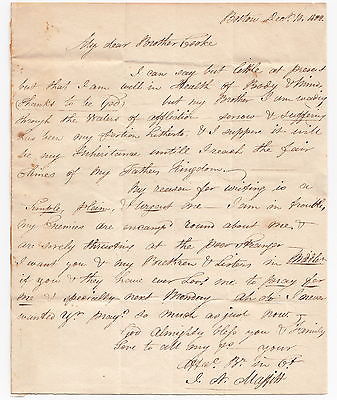 Boston Dec. 10, 18
My dear Brother
I can say but little at present
but that I am well in Health of Body & Mind,
thanks to be God; but my Brother I am wading
through the Waters of affliction sorrow & suffering
has been my portion hitherto & I suppose it will
be my Inheritance untill I reach the fair
Climes of my Fathers Kingdom.
My reason for writing is a
simple plain, & urgent one — I am in trouble,
my Enemies are encamped round about me, &
are sorely thrusting at the poor stranger
I want you & my Brethren & Sisters in
if you & they have ever Lov'd me to pray for
me & specially next Monday ah do I never
wanted Yr. prayr. so much as just now
God Almighty bless you & Family
Love to all my
your
Affec. Br. in Ct.
J. N. Maffitt